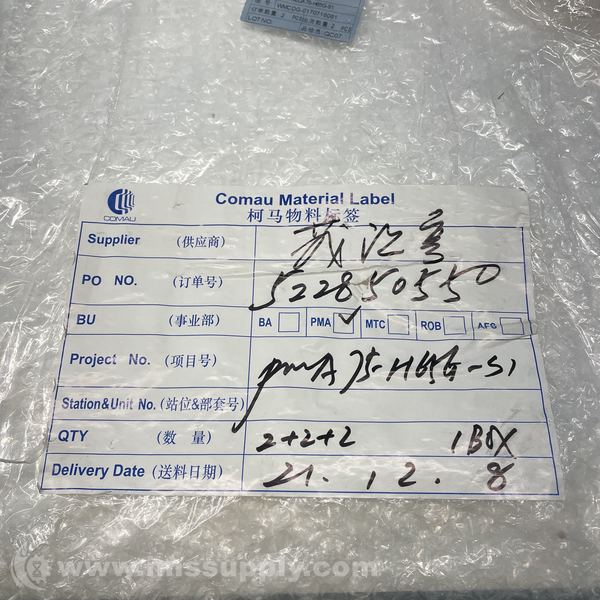 订单数量 2 PCS
LOT NO:
QC07
COMAU
Comau Material Label
柯马物料标签
Supplier (供应商)
PO NO. (订单号) 522850550
BU (事业部) BA PMA ✓ MTC ROB AES
Project No. (项目号) pmA 75-H65G-S1
Station&Unit No. (站位&部套号)
QTY (数 量) 2+2+2 1BOX
Delivery Date (送料日期) 21. 12. 8
© www.mrosupply.com